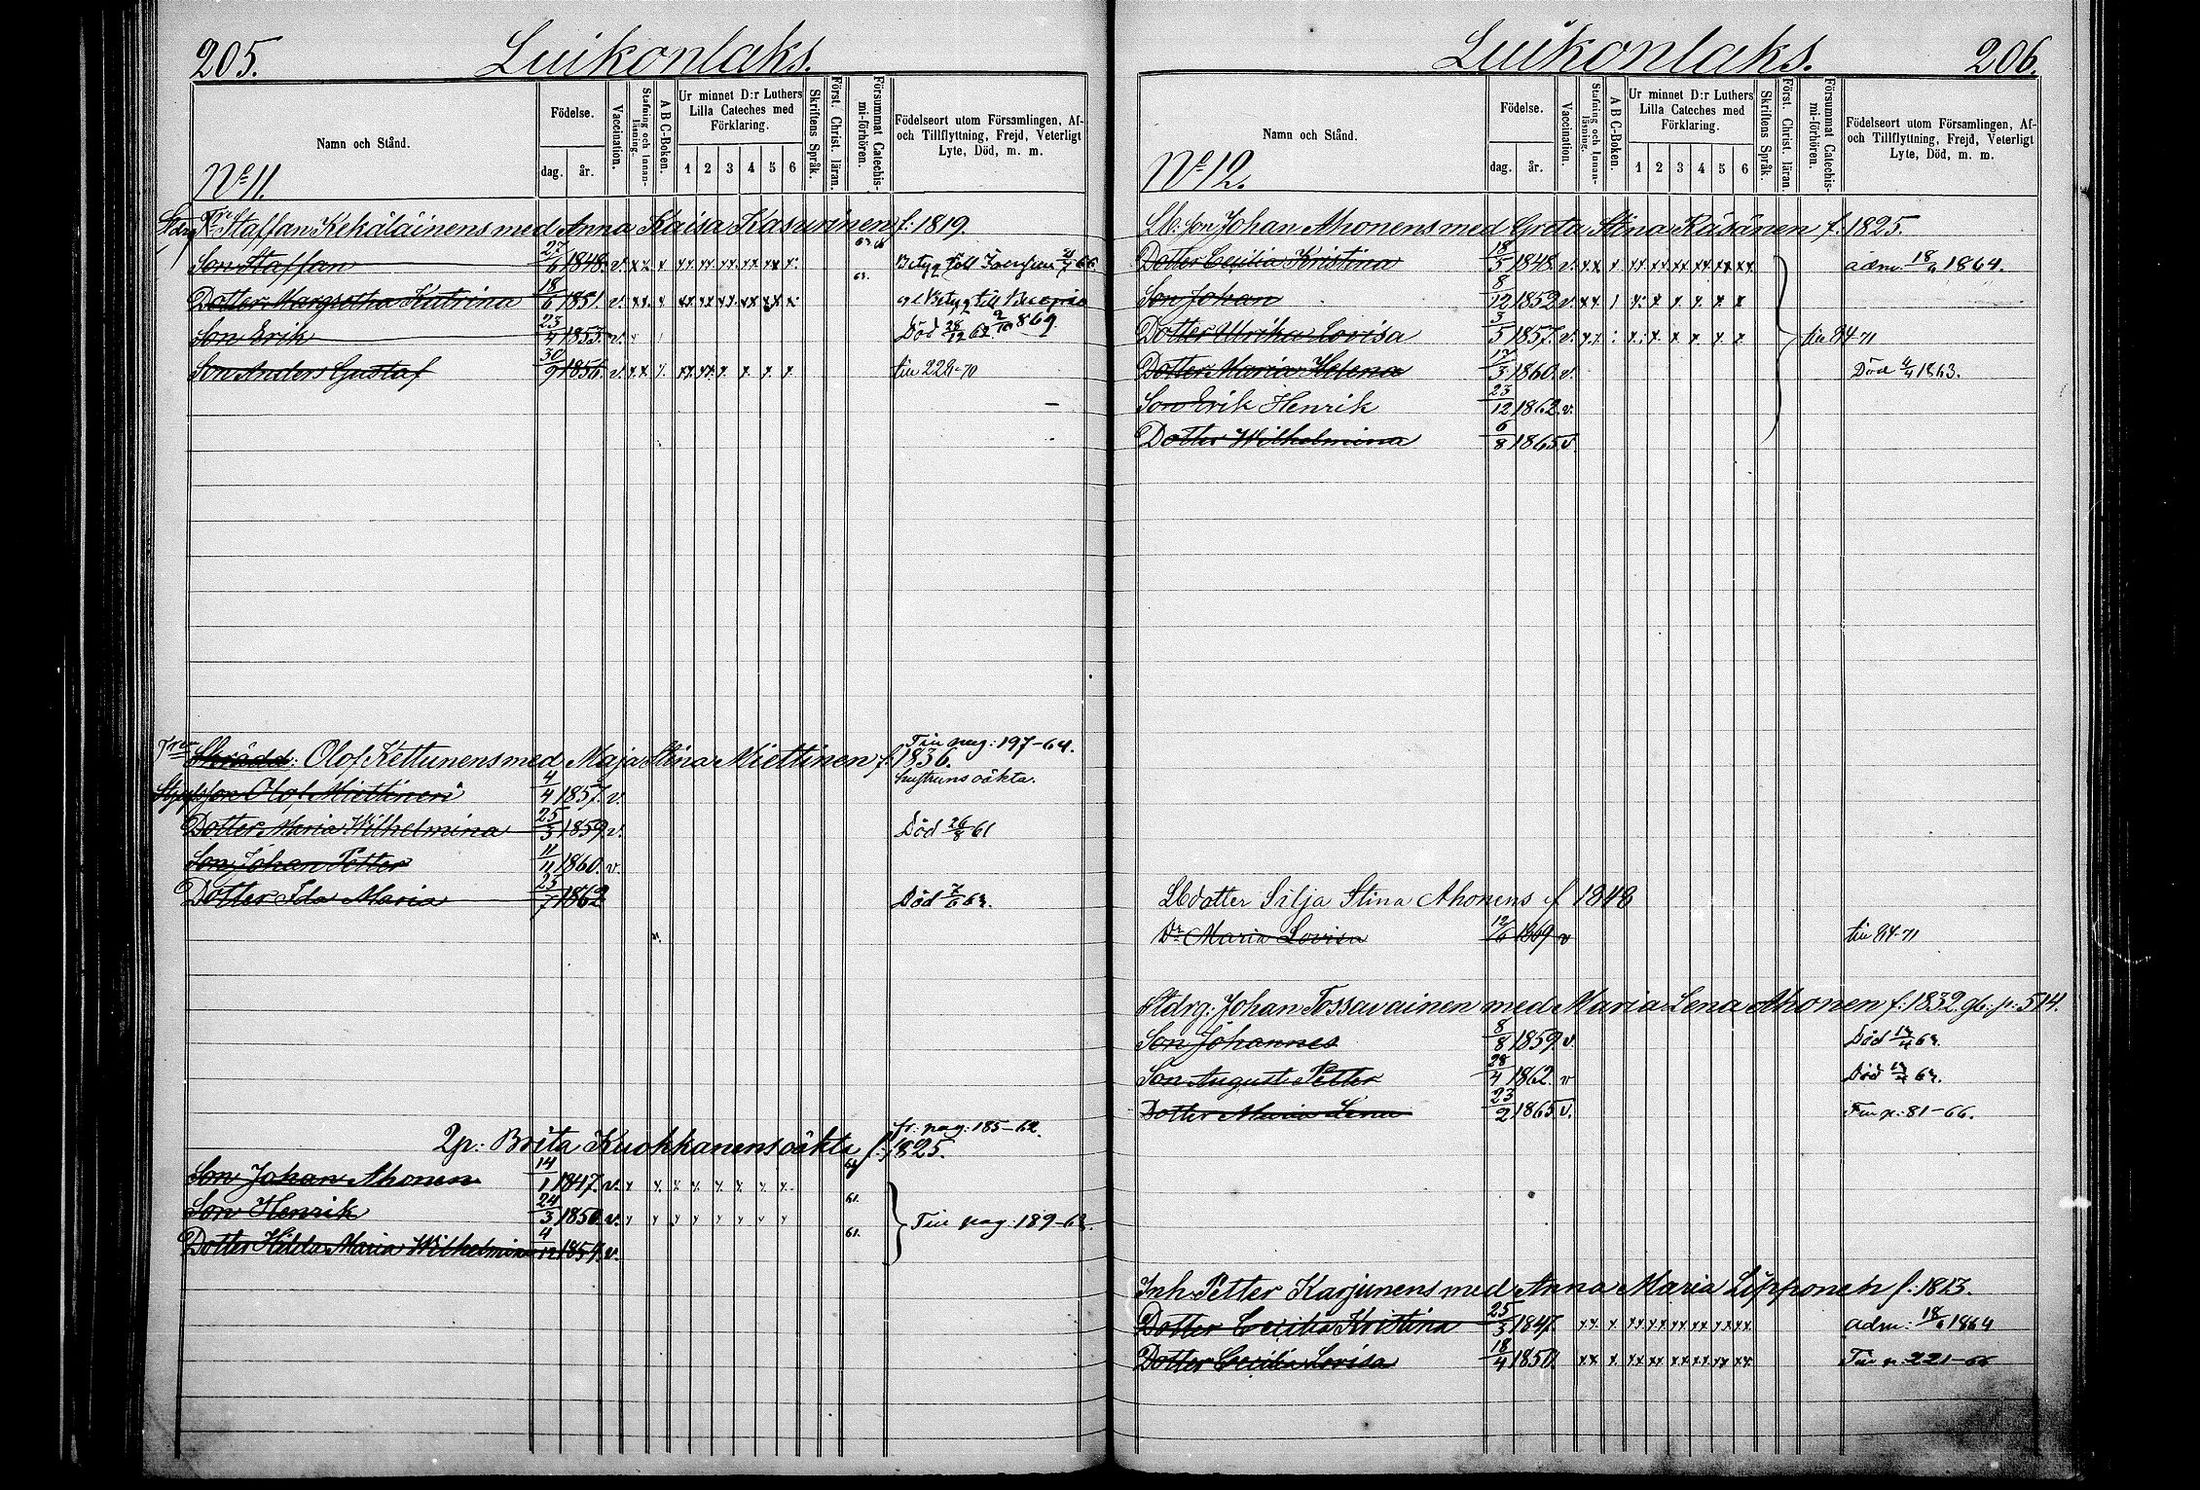 205. Luikonlaks.
Namn och Stånd.
Födelse.
dag. år.
Vaccination.
Stafning och Innanläsning.
A B C-Boken.
Ur minnet D:r Luthers Lilla Cateches med Förklaring.
1 2 3 4 5 6
Skriftens Språk.
Först. Christ. läran.
Försummat Catechismi-förhören.
Födelseort utom Församlingen, Af- och Tillflyttning, Frejd, Veterligt Lyte, Död, m. m.
No 11.
Staffan Kekäläinens med Anna Kaisa Kasurinen f: 1819
Son Staffan 27/6 1848. v.
Dotter Margretha Katrina 18/6 1851. v.
Son Erik 23/4 1853 v. Död 28/12 62
Son Anders Gustaf 30/9 1856 v. tin 228-70
Skrädd: Olof Kettunens med Maja Stina Miettinen f: 1836. Tin pag: 197-64.
Son Olof Miettinen 4/4 1857. v. hustruns oäkta.
Dotter Maria Wilhelmina 25/3 1859 v. Död 26/8 61
Son Johan Petter 11/11 1860. v.
Dotter Ida Maria 25/7 1862 Död 7/6 63.
fr: pag: 185-62.
Qp: Brita Kuokkanens oäkta f: 1825.
Son Johan Ahonen 14/1 1847. v.
Son Henrik 24/3 1850. v. 61. Tin pag: 189-63.
Dotter Hilda Maria Wilhelmina 4/12 1857. v. 61.
Luikonlaks. 206.
Namn och Stånd.
Födelse.
dag. år.
Vaccination.
Stafning och Innanläsning.
A B C-Boken.
Ur minnet D:r Luthers Lilla Cateches med Förklaring.
1 2 3 4 5 6
Skriftens Språk.
Först. Christ. läran.
Försummat Catechismi-förhören.
Födelseort utom Församlingen, Af- och Tillflyttning, Frejd, Veterligt Lyte, Död, m. m.
No 12.
Lb: Son Johan Ahonens med Greta Stina Räsänen f: 1825.
Dotter Cecilia Kristina 18/5 1848. v. adm. 18/6 1864.
Son Johan 8/12 1852 v.
Dotter Ulrika Lovisa 3/5 1857. v. tin 84-71
Dotter Maria Helena 17/3 1860. v. Död 4/4 1863.
Son Erik Henrik 23/12 1862. v.
Dotter Wilhelmina 6/8 1865 v.
Lbdotter Silja Stina Ahonens f 1848
Dr Maria Lovisa 12/6 1869 v tin 84-71
Stdrg: Johan Tossavainen med Maria Lena Ahonen f: 1832. gb: p: 514.
Son Johannes 8/8 1859 v.
Son August Petter 28/4 1862. v
Dotter Maria Lena 23/2 1865 v. Tin p: 81-66.
Inh. Petter Karjunens med Anna Maria Lipponen f: 1823.
Dotter Cecilia Kristina 25/3 1847. adm: 18/6 1864
Dotter Cecilia Lovisa 18/4 1850. Tin p: 221-66